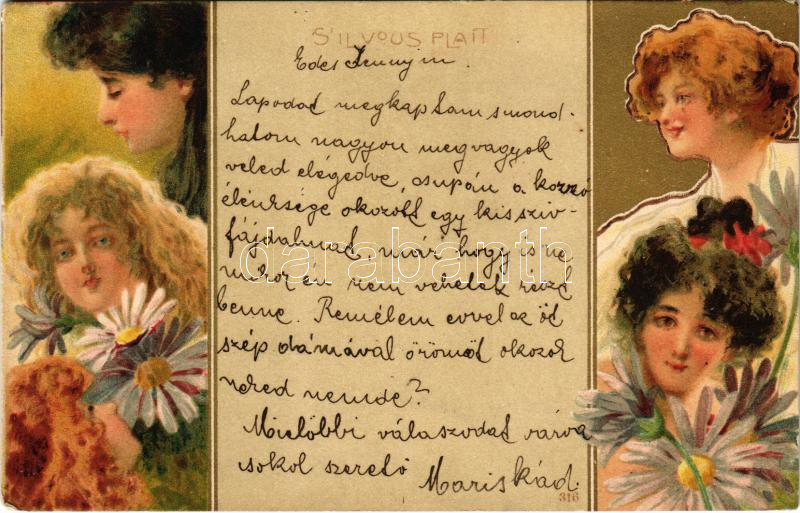 S'IL VOUS PLAIT
Edes Jennym.
Lapodat megkaptam smond-
hatom nagyon megvagyok
veled elégedve, csupán a korzó
élénksége okozott egy kis sziv-
fájdalmat, már hogy is ne
mikor én nem vehetek részt
benne. Remélem evvel az öt
szép dámával örömöt okozok
neked nemde?
Mielőbbi válaszodat várva
sokol szerető Mariskád.
316
darabanth